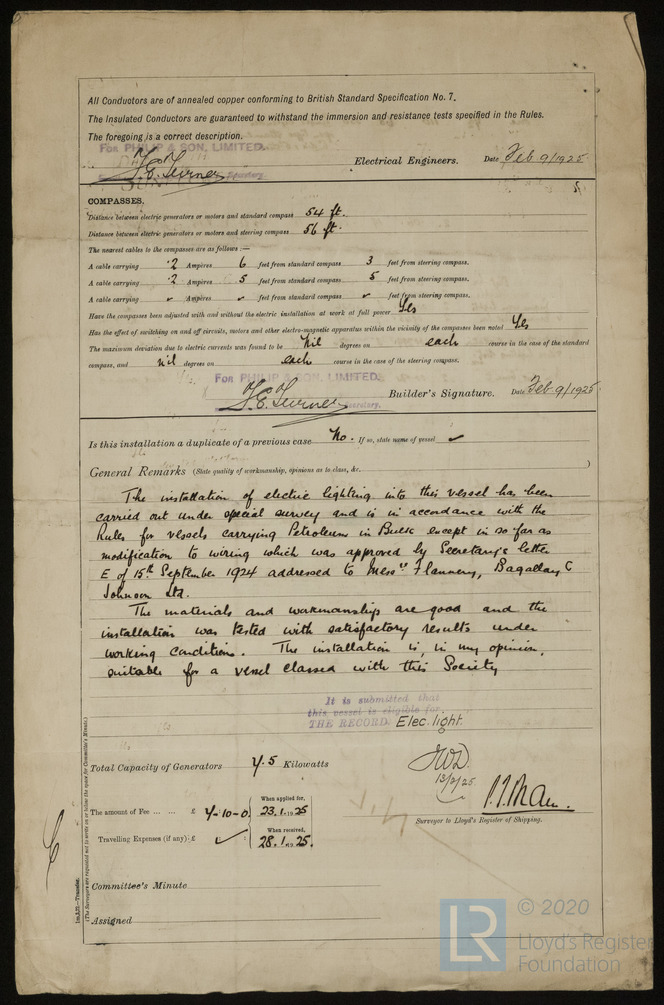 All Conductors are of annealed copper conforming to British Standard Specification No. 7.
The Insulated Conductors are guaranteed to withstand the immersion and resistance tests specified in the Rules.
The foregoing is a correct description.
FOR PHILIP & SON, LIMITED.
Electrical Engineers. Date Feb. 9/1925
COMPASSES.
Distance between electric generators or motors and standard compass 54 ft.
Distance between electric generators or motors and steering compass 56 ft.
The nearest cables to the compasses are as follows:—
A cable carrying 2 Ampères 6 feet from standard compass 3 feet from steering compass.
A cable carrying 2 Ampères 5 feet from standard compass 5 feet from steering compass.
A cable carrying ✓ Ampères ✓ feet from standard compass ✓ feet from steering compass.
Have the compasses been adjusted with and without the electric installation at work at full power Yes
Has the effect of switching on and off circuits, motors and other electro-magnetic apparatus within the vicinity of the compasses been noted Yes
The maximum deviation due to electric currents was found to be Nil degrees on each course in the case of the standard
compass, and nil degrees on each course in the case of the steering compass.
FOR PHILIP & SON, LIMITED.
Builder's Signature. Date Feb 9/1925
Secretary.
Is this installation a duplicate of a previous case No. If so, state name of vessel ✓
General Remarks (State quality of workmanship, opinions as to class, &c. )
The installation of electric lighting into this vessel has been
carried out under special survey and is in accordance with the
Rules for vessels carrying Petroleum in Bulk except in so far as
modification to wiring which was approved by Secretary's letter
E of 15th September 1924 addressed to Messrs Flannery, Baggallay &
Johnson Ltd.
The materials and workmanship are good and the
installation was tested with satisfactory results under
working conditions. The installation is, in my opinion,
suitable for a vessel classed with this Society
It is submitted that
this vessel is eligible for
THE RECORD. Elec. light.
Total Capacity of Generators 4.5 Kilowatts
13/2/25
The amount of Fee ... ... £ 4-10-0
When applied for,
23.1.1925
Travelling Expenses (if any) £ ✓
When received,
28.1.1925.
Surveyor to Lloyd's Register of Shipping.
Committee's Minute
Assigned
(The Surveyors are requested not to write on or below the space for Committee's Minute.)
LR
© 2020
Lloyd's Register
Foundation